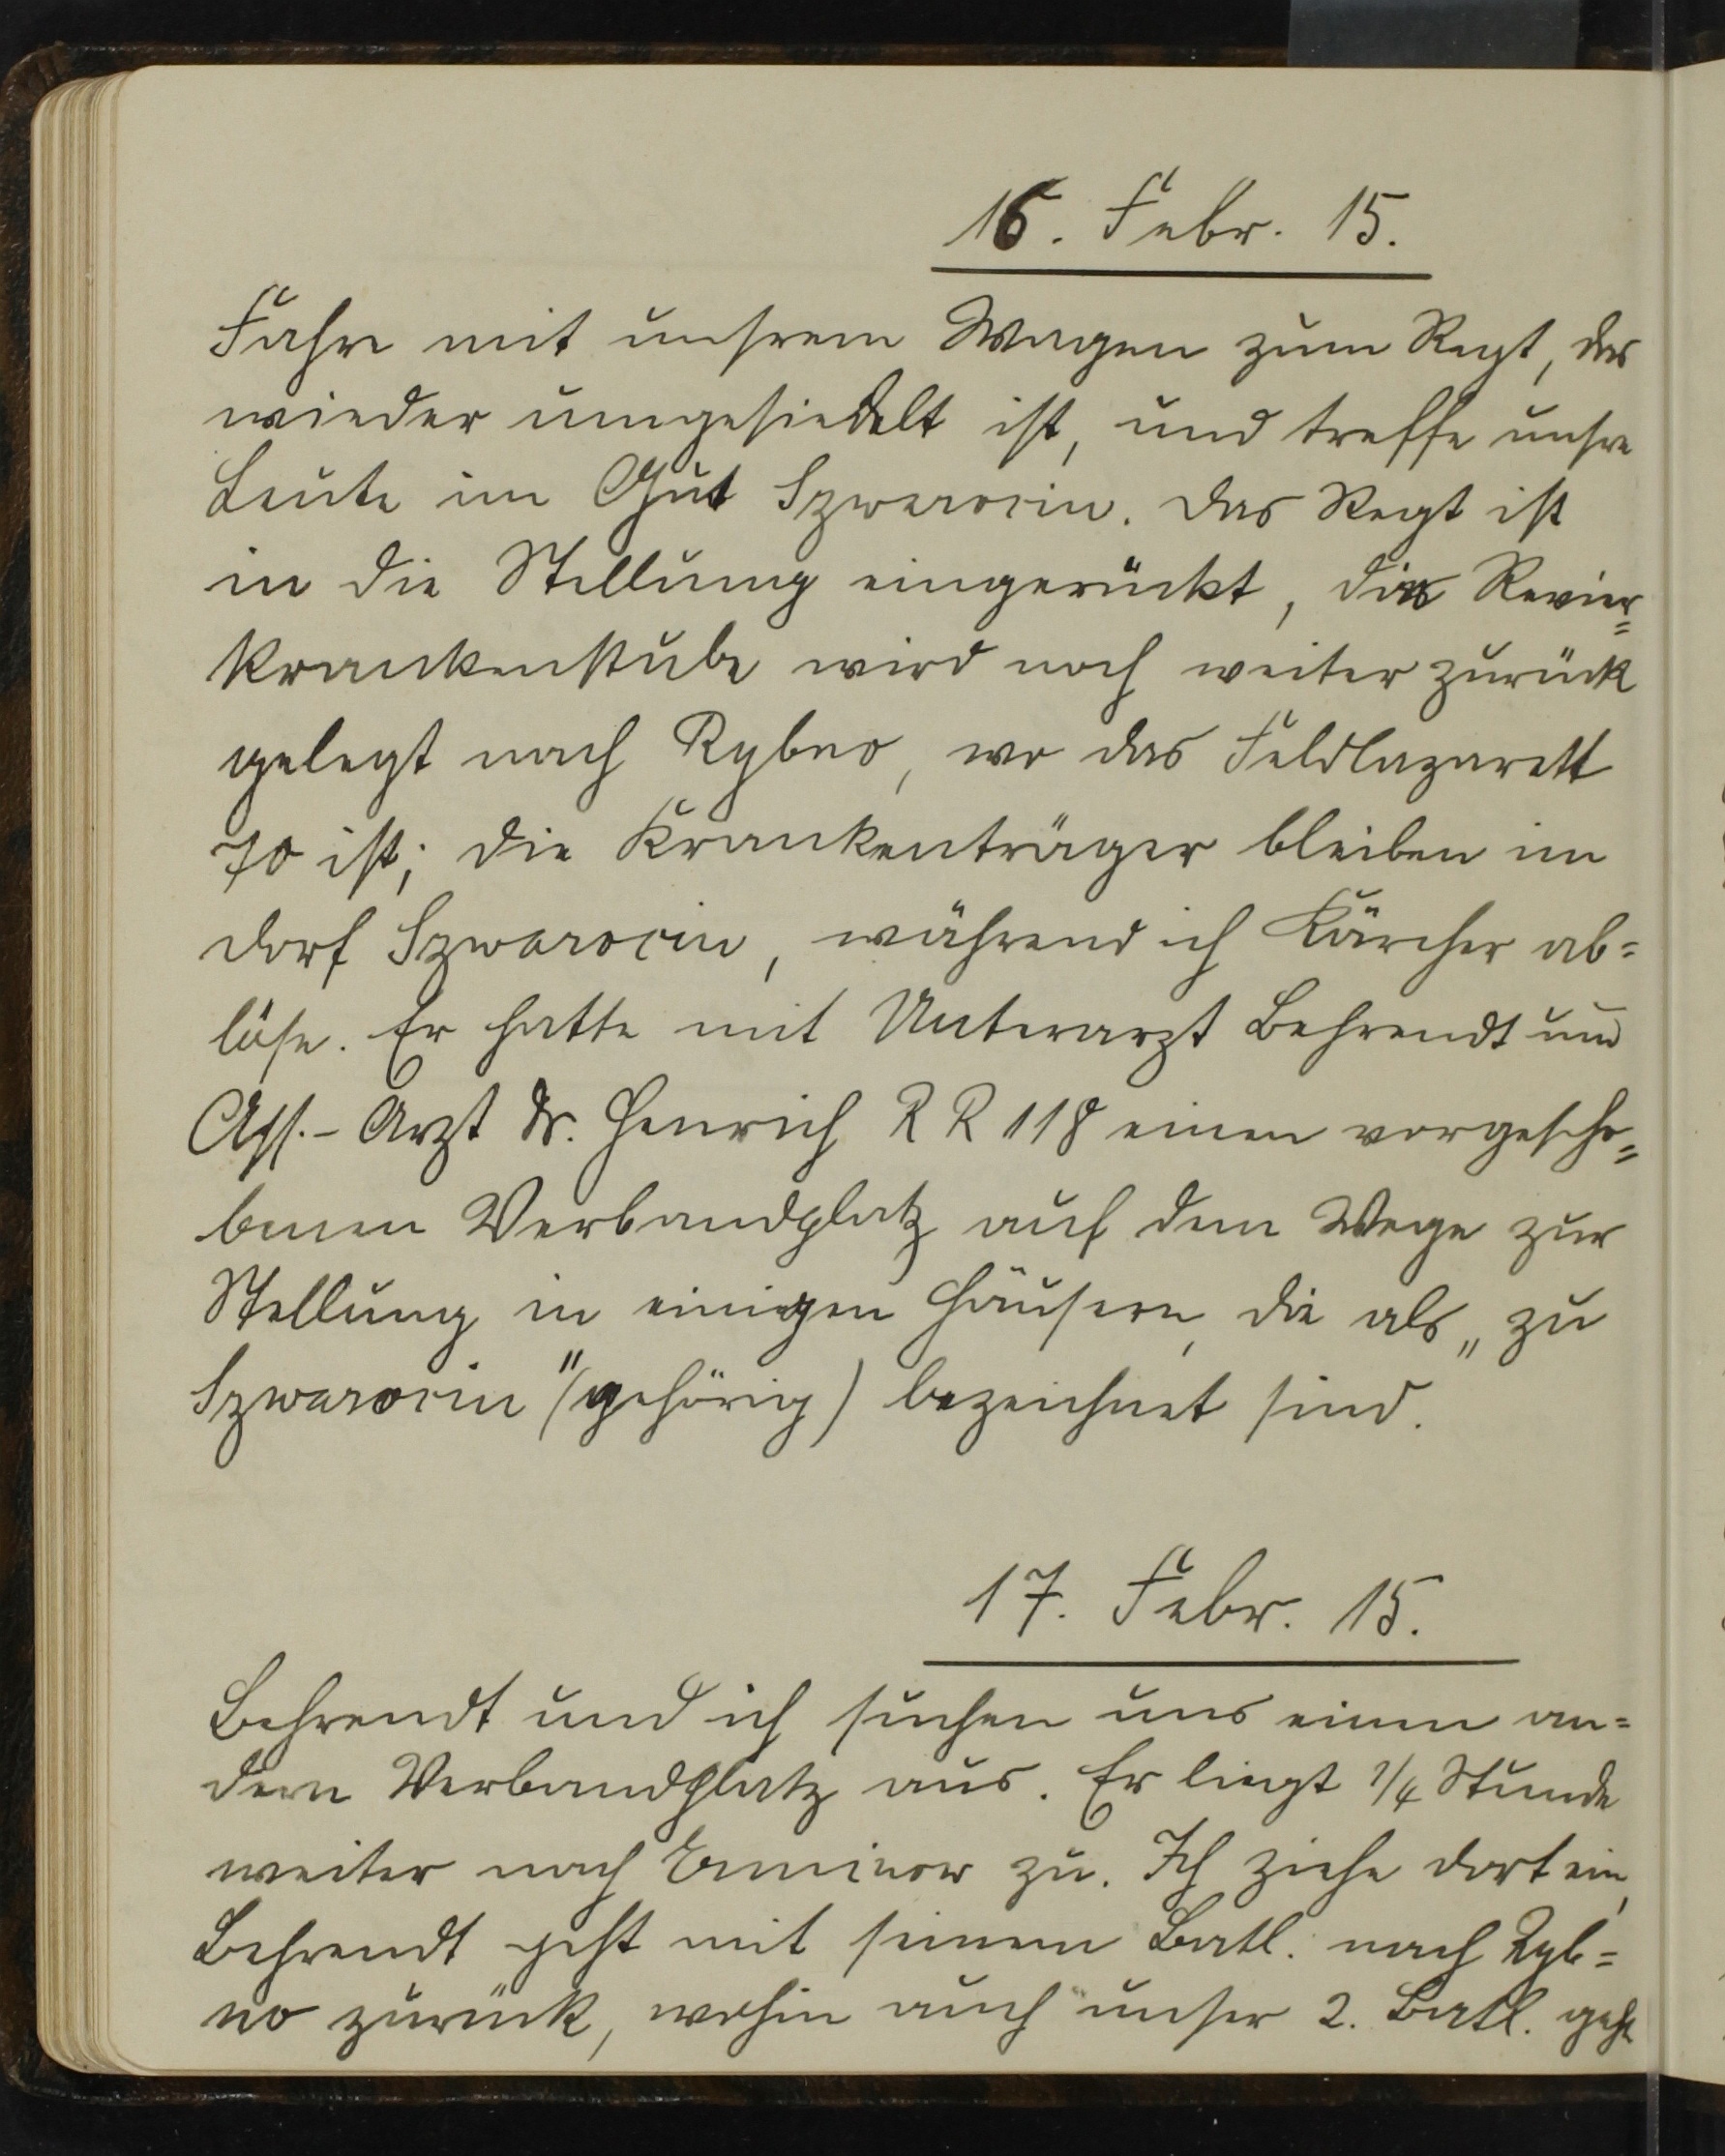 16. Febr. 15.
Fahre mit unsrem Wagen zum Regt, das
wieder umgesiedelt ist, und treffe unsre
Leute im Gut Szwarocin. Das Regt ist
in die Stellung eingerückt, die Revier=
krankenstube wird noch weiter zurück
gelegt nach Rybno, wo das Feldlazarett
70 ist; die Krankenträger bleiben im
Dorf Szwarocin, während ich Kärcher ab=
löse. Er hatte mit Unterarzt Behrendt und
Ass.-Arzt Dr. Henrich R R 118 einen vorgescho=
benen Verbandplatz auf dem Wege zur
Stellung in einigen Häusern, die als „zu
Szwarocin" (gehörig) bezeichnet sind.
17. Febr. 15.
Behrendt und ich suchen uns einen an=
dern Verbandplatz aus. Er liegt 1/4 Stunde
weiter nach Erminow zu. Ich ziehe dort ein,
Behrendt geht mit seinem Batl. nach Ryb=
no zurück, wohin auch unser 2. Batl. geht